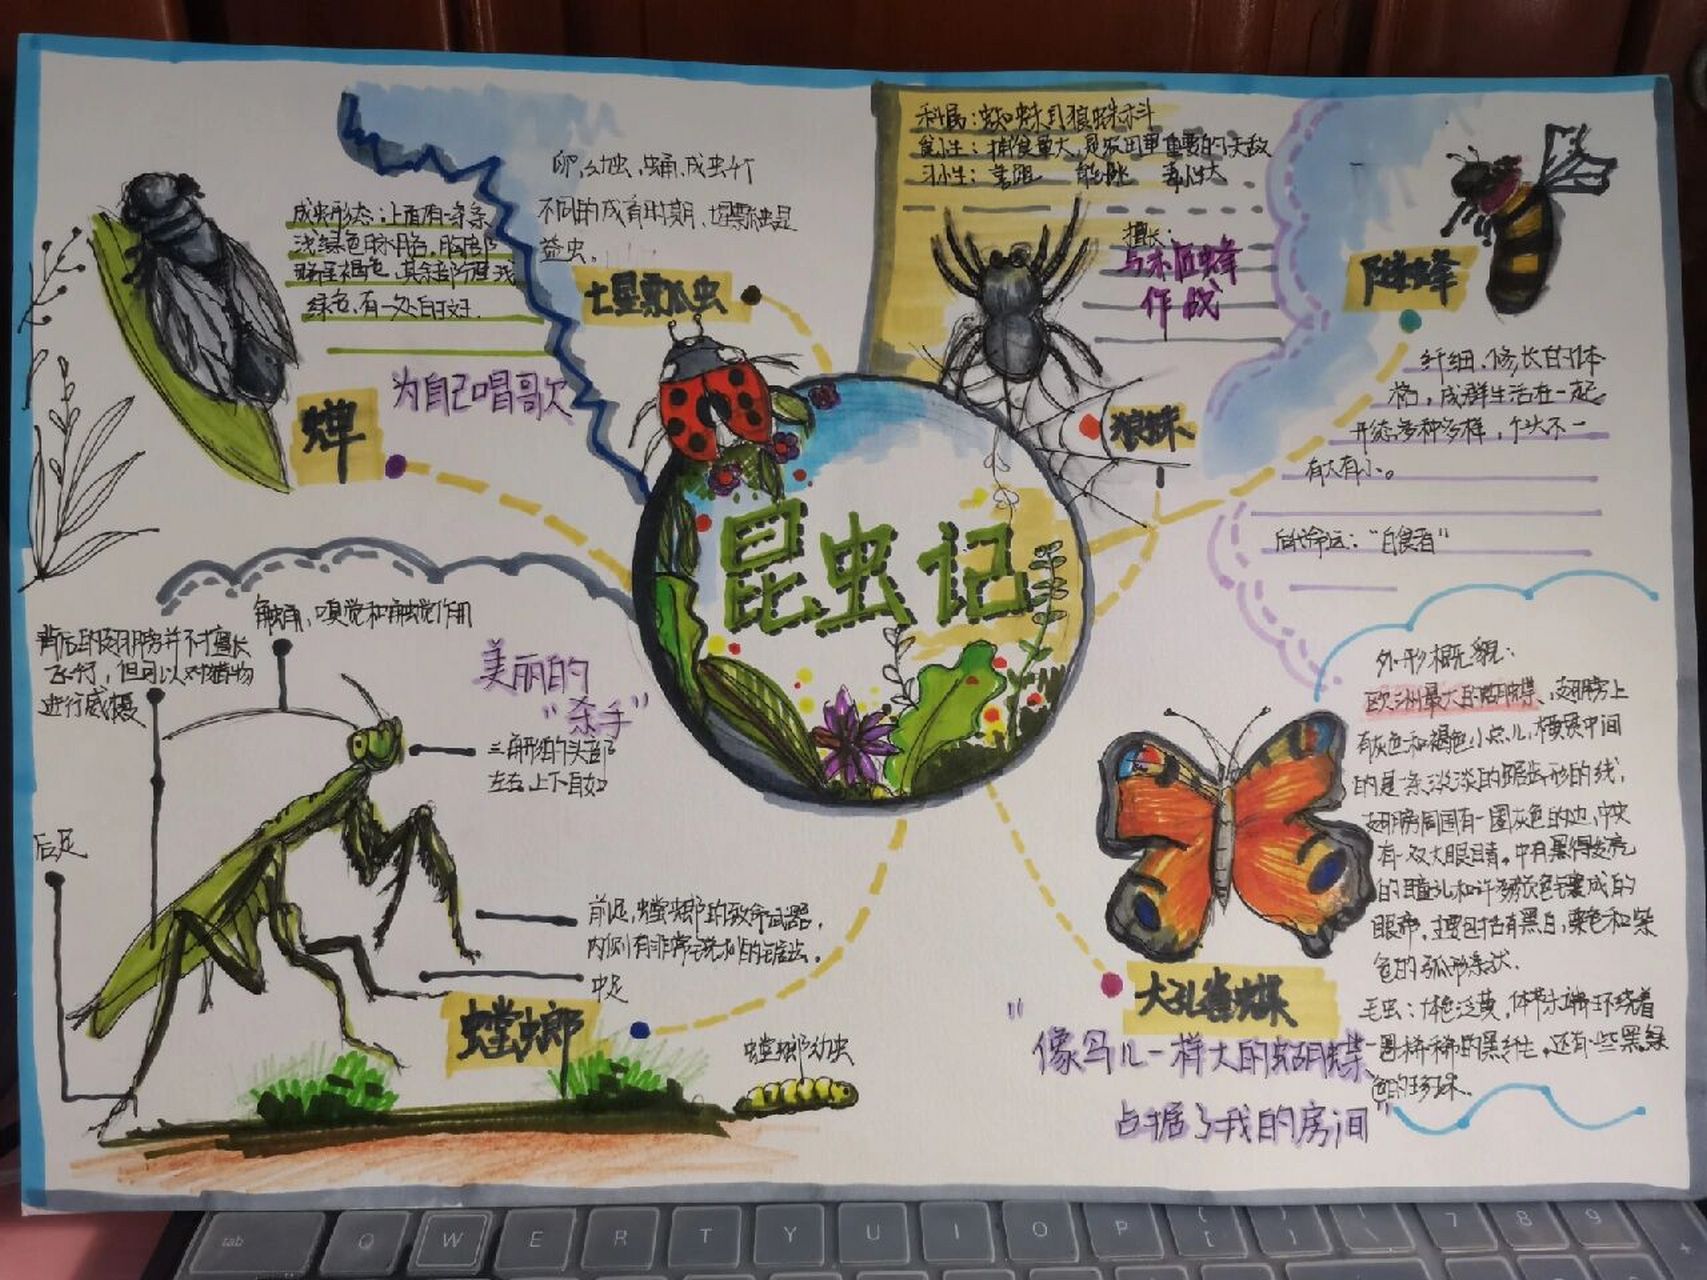 昆虫记
成虫形态:上面有一条条
浅绿色脉胳,胸部
略呈褐色,其余部分呈浅
绿色,有一处白斑.
蝉
为自己唱歌
卵,幼虫,蛹,成虫,
不同的成育时期,七星瓢虫是
益虫。
七星瓢虫
科属:蜘蛛目狼蛛科
食性:捕食量大,是农田里重要的天敌
习性:善跑 能跳 毒性大
擅长:
与木匠蜂
作战
狼蛛
隧蜂
纤细、修长的体
格,成群生活在一起
形态多种多样,个头不一
有大有小。
后代命运:"白食者"
触角,嗅觉和触觉作用
背后的翅膀并不擅长
飞行,但可以对猎物
进行威慑
美丽的
"杀手"
三角形的头部
左右,上下自如
后足
前足,螳螂的致命武器,
内侧有非常锐利的锯齿。
中足
螳螂
螳螂幼虫
外形概貌:
欧洲最大的蝴蝶、翅膀上
有灰色和褐色小点儿,横贯中间
的是条淡淡的锯齿形的线,
翅膀周围有一圈灰色的边,中央
有一双大眼睛。中有黑得发亮
的瞳孔和许多颜色镶成的
眼帘,主要包括有黑白,栗色和紫
色的弧形条状.
毛虫:体色泛黄,体节末端环绕着
一圈稀稀的黑纤毛,还有一些黑绿
色的珍珠.
大孔雀蝶
"像鸟儿一样大的蝴蝶
占据了我的房间"
tab Q W E R T Y U I O P { [ } ] | \ 7 8 9 +